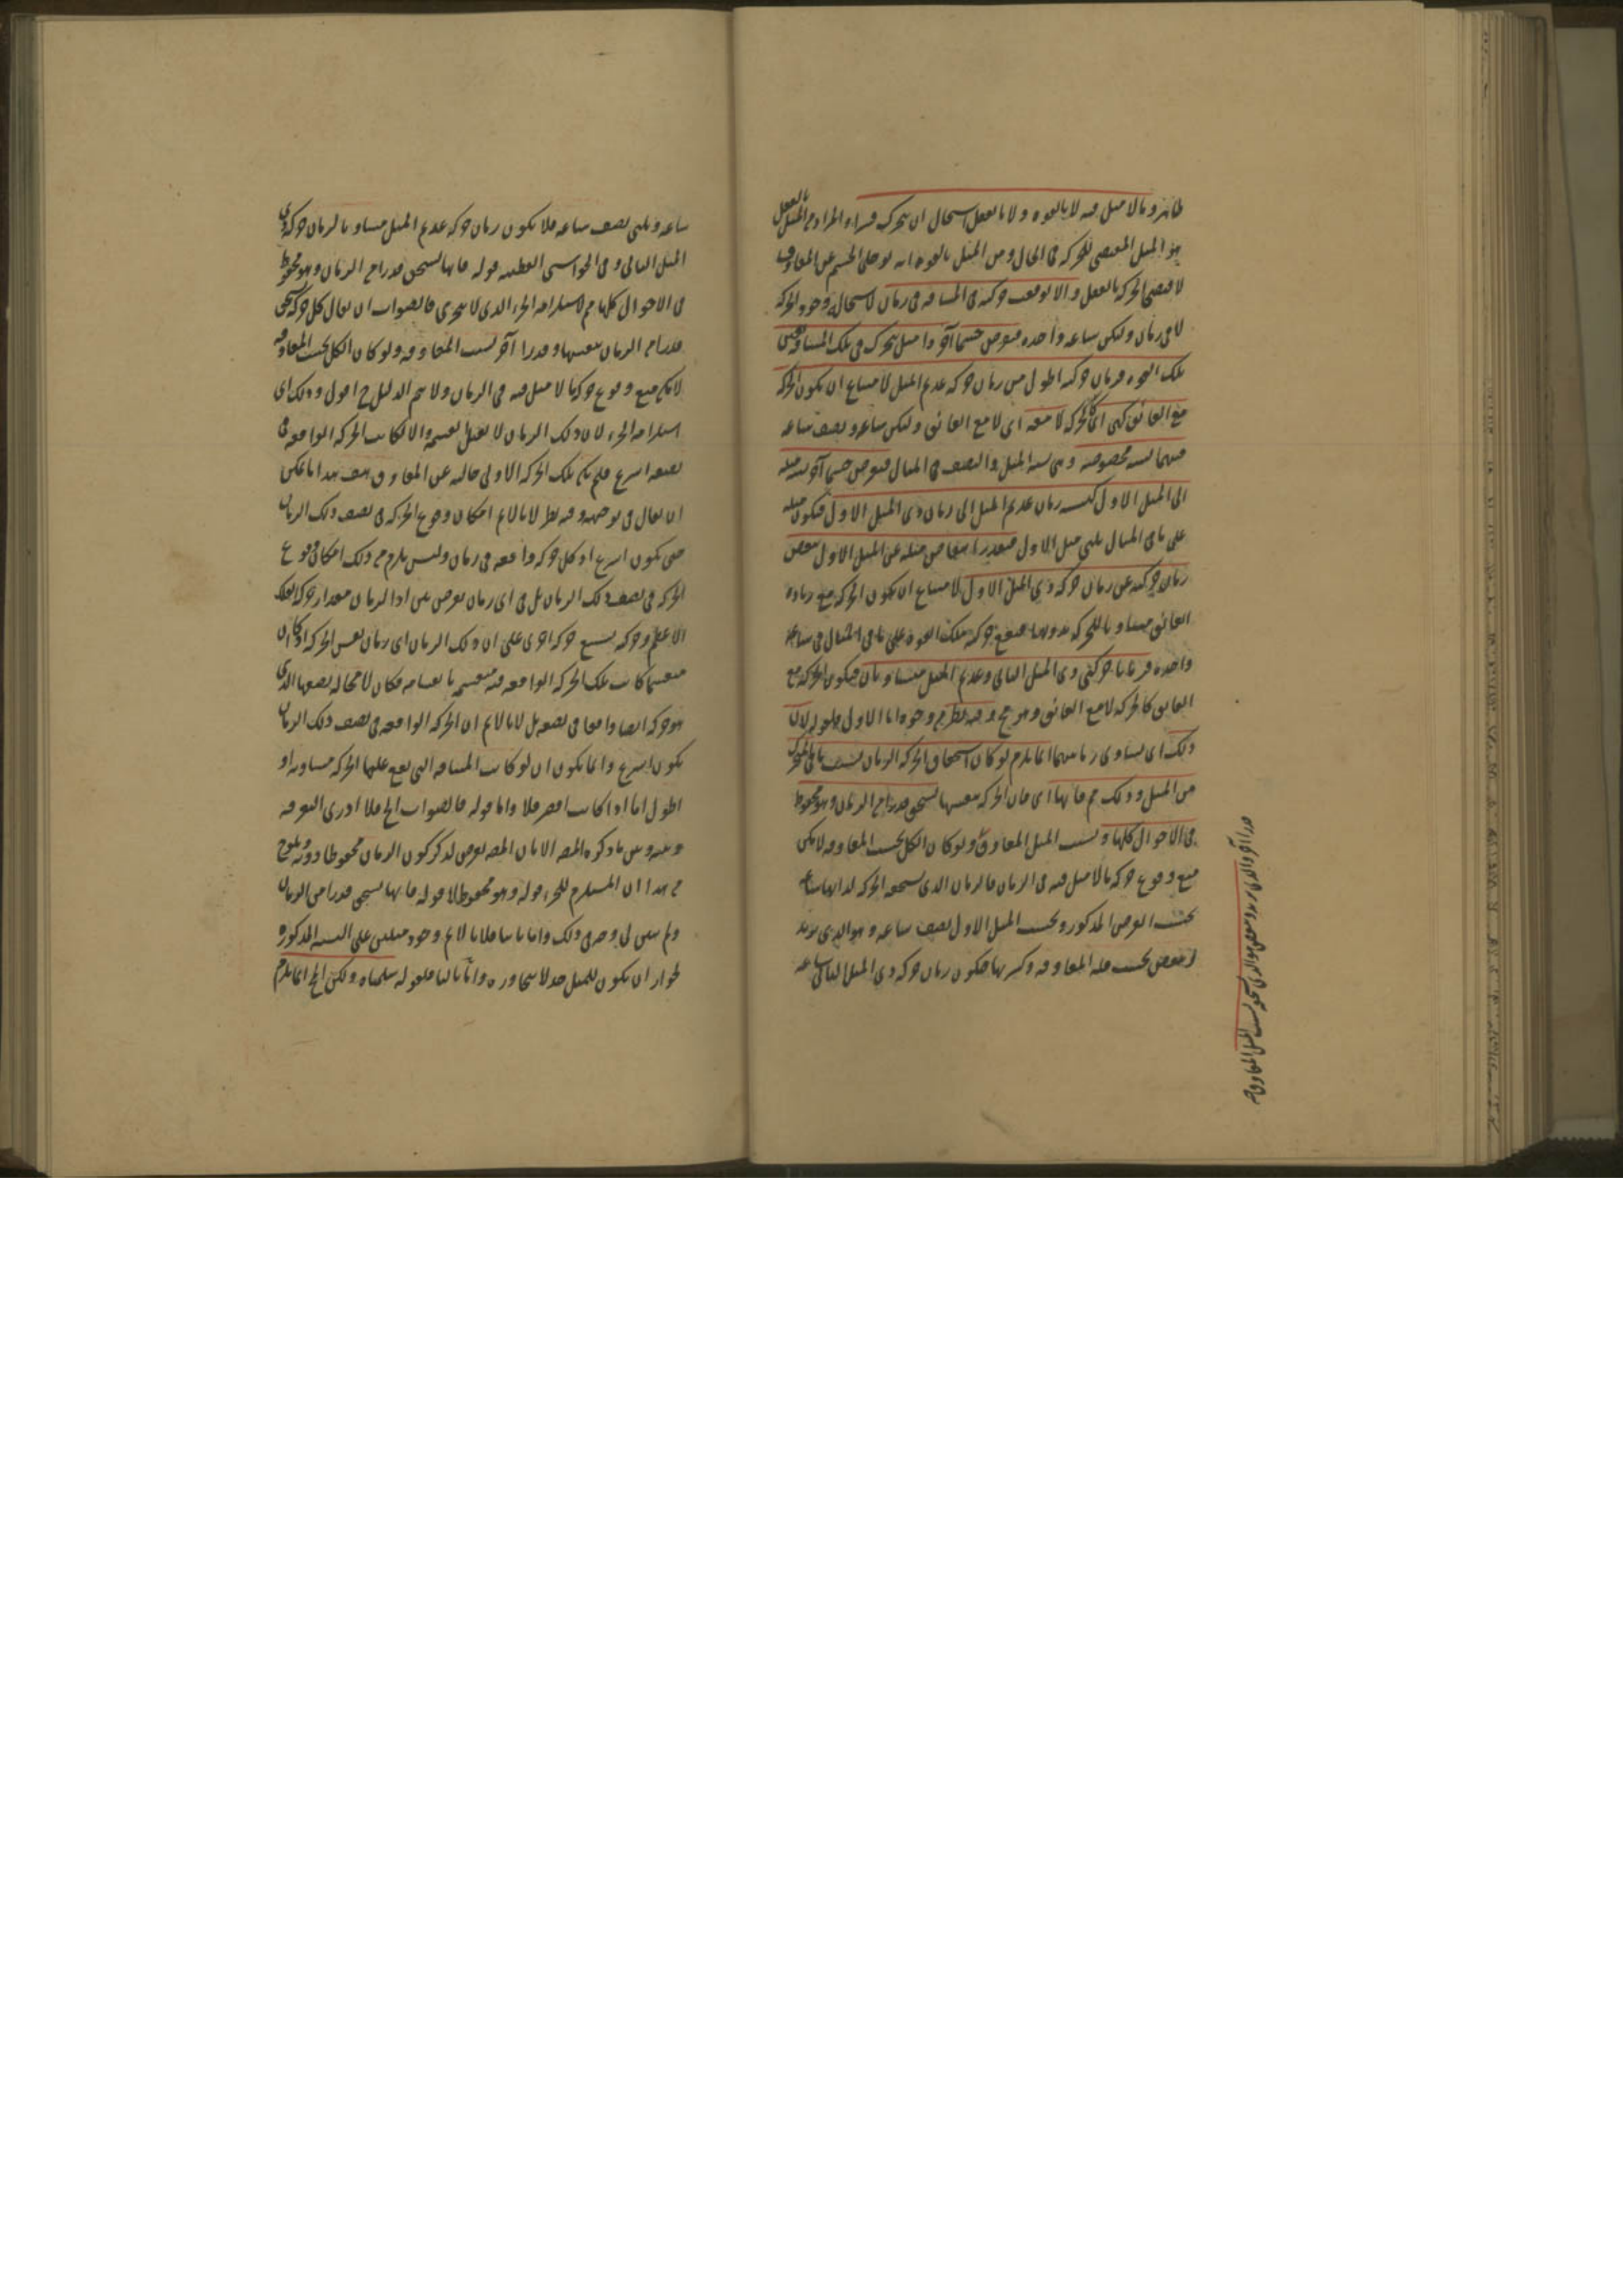 ظاهر وما لا ميل فيه لا بالقوه ولا بالفعل استحال ان يتحرك قسرا المراد من الميل بالفعل
هو الميل المقتضي للحركه في الحال ومن الميل بالقوه انه لو خلى الجسم عن المعاوق
لاقتضى الحركه بالفعل والا لوقعت حركته في المسافه في زمان لاستحاله وجود الحركه
لا في زمان وليكن ساعه واحده فنفرض جسما آخر ذا ميل يتحرك في تلك المسافه بعين
تلك القوه فزمان حركته اطول من زمان حركه عديم الميل لامتناع ان يكون الحركه
مع العائق كهي اي كالحركه لا معه اي لا مع العائق وليكن ساعه ونصف ساعه
فبينهما نسبه مخصوصه وهي نسبه الميل والنصف في المثال فنفرض جسما آخر نسبه ميله
الى الميل الاول كنسبه زمان عديم الميل الى زمان ذي الميل الاول فيكون ميله
على ما في المثال ثلثي ميل الاول فبقدر انتقاص ميله عن الميل الاول ينقص
زمان حركته عن زمان حركه ذي الميل الاول لامتناع ان يكون الحركه مع زياده
العائق مساويا للحركه بدونها فيقع حركته بتلك القوه على ما في المثال في ساعه
واحده فزمانا حركتي ذي الميل الثاني وعديم الميل متساويان فيكون الحركه مع
العائق كالحركه لا مع العائق وهو مح وفيه نظر من وجوه اما الاول فلقوله لان
ذلك اي تساوي زمانيهما انما يلزم لو كان استحقاق الحركه الزمان بسبب ما في المتحرك
من الميل وذلك مم فانها اي فان الحركه بنفسها تستحق قدرا من الزمان وهو محفوظ
في الاحوال كلها وبسبب الميل المعاوق ولو كان الكل بحسب المعاوقه لا يمكن
منع وقوع حركه ما لا ميل فيه في الزمان فالزمان الذي تستحقه الحركه لذاتها ساعه
بحسب الفرض المذكور وبحسب الميل الاول نصف ساعه وهو الذي يزيد
وينقص بحسب قله المعاوقه وكثرتها فيكون زمان حركه ذي الميل الثاني ساعه
قدرا آخر
بسبب الميل المعاوق
ساعه وثلثي نصف ساعه فلا يكون زمان حركه عديم الميل مساويا لزمان حركه ذي
الميل الثاني وفي الحواشي القطبيه قوله فانها تستحق قدرا من الزمان وهو محفوظ
في الاحوال كلها مم لاستلزامه الجزء الذي لا يتجزى فالصواب ان يقال كل حركه تستحق
قدرا من الزمان بنفسها وقدرا آخر بسبب المعاوقه ولو كان الكل بحسب المعاوقه
لامكن منع وقوع حركه ما لا ميل فيه في الزمان ولا يتم الدليل ح اقول وذلك اي
استلزامه الجزء لان ذلك الزمان لا يقبل القسمه والا لكانت الحركه الواقعه في
نصفه اسرع فلم يكن تلك الحركه الاولى خاليه عن المعاوق هف هذا ما يمكن
ان يقال في توجيهه وفيه نظر لانا لا نم امكان وقوع الحركه في نصف ذلك الزمان
حتى يكون اسرع اذ كل حركه واقعه في زمان وليس يلزم من ذلك امكان وقوع
الحركه في نصف ذلك الزمان بل في اي زمان يفرض بلى اذا الزمان مقدار حركه الفلك
الاعظم وحركه يتبع حركه اخرى على ان ذلك الزمان اي زمان نفس الحركه اذ كان
منقسما كانت تلك الحركه الواقعه فيه منقسمه بانقسامه فكان لا محاله نصفها الذي
هو حركه ايضا واقعا في نصفه بل لانا لا نم ان الحركه الواقعه في نصف ذلك الزمان
يكون اسرع وانما يكون ان لو كانت المسافه التي يقع عليها الحركه مساويه او
اطول اما اذا كانت اقصر فلا واما قوله فالصواب الخ فلا ادري التفرقه
بينه وبين ما ذكره المصـ الا بان المصـ تعرض لذكر كون الزمان محفوظا دونه ويلوح
من هذا ان المستلزم للجزء قوله وهو محفوظ لا قوله فانها تستحق قدرا من الزمان
ولم يتبين لي وجه ذلك واما ثانيا فلانا لا نم وجود ميلين على النسبه المذكوره
لجواز ان يكون للميل حد لا يتجاوزه واما ثالثا فلقوله سلمناه ولكن الخ انما يلزم